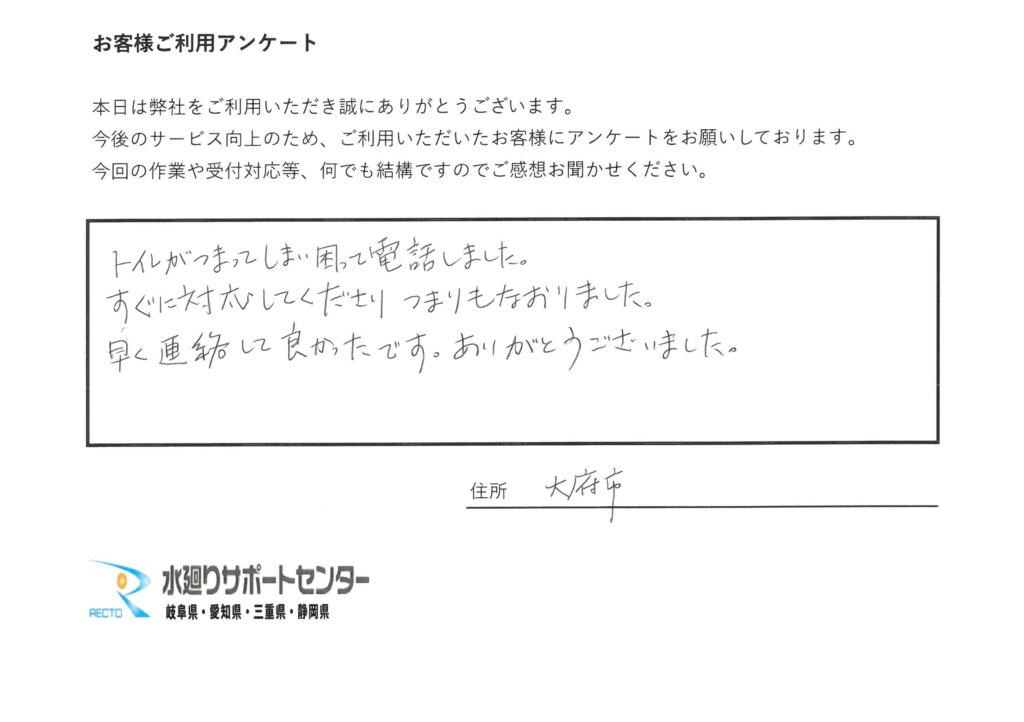 お客様ご利用アンケート
本日は弊社をご利用いただき誠にありがとうございます。
今後のサービス向上のため、ご利用いただいたお客様にアンケートをお願いしております。
今回の作業や受付対応等、何でも結構ですのでご感想お聞かせください。
トイレがつまってしまい困って電話しました。
すぐに対応してくださり つまりもなおりました。
早く連絡して良かったです。ありがとうございました。
住所 大府市
水廻りサポートセンター
RECTO 岐阜県・愛知県・三重県・静岡県